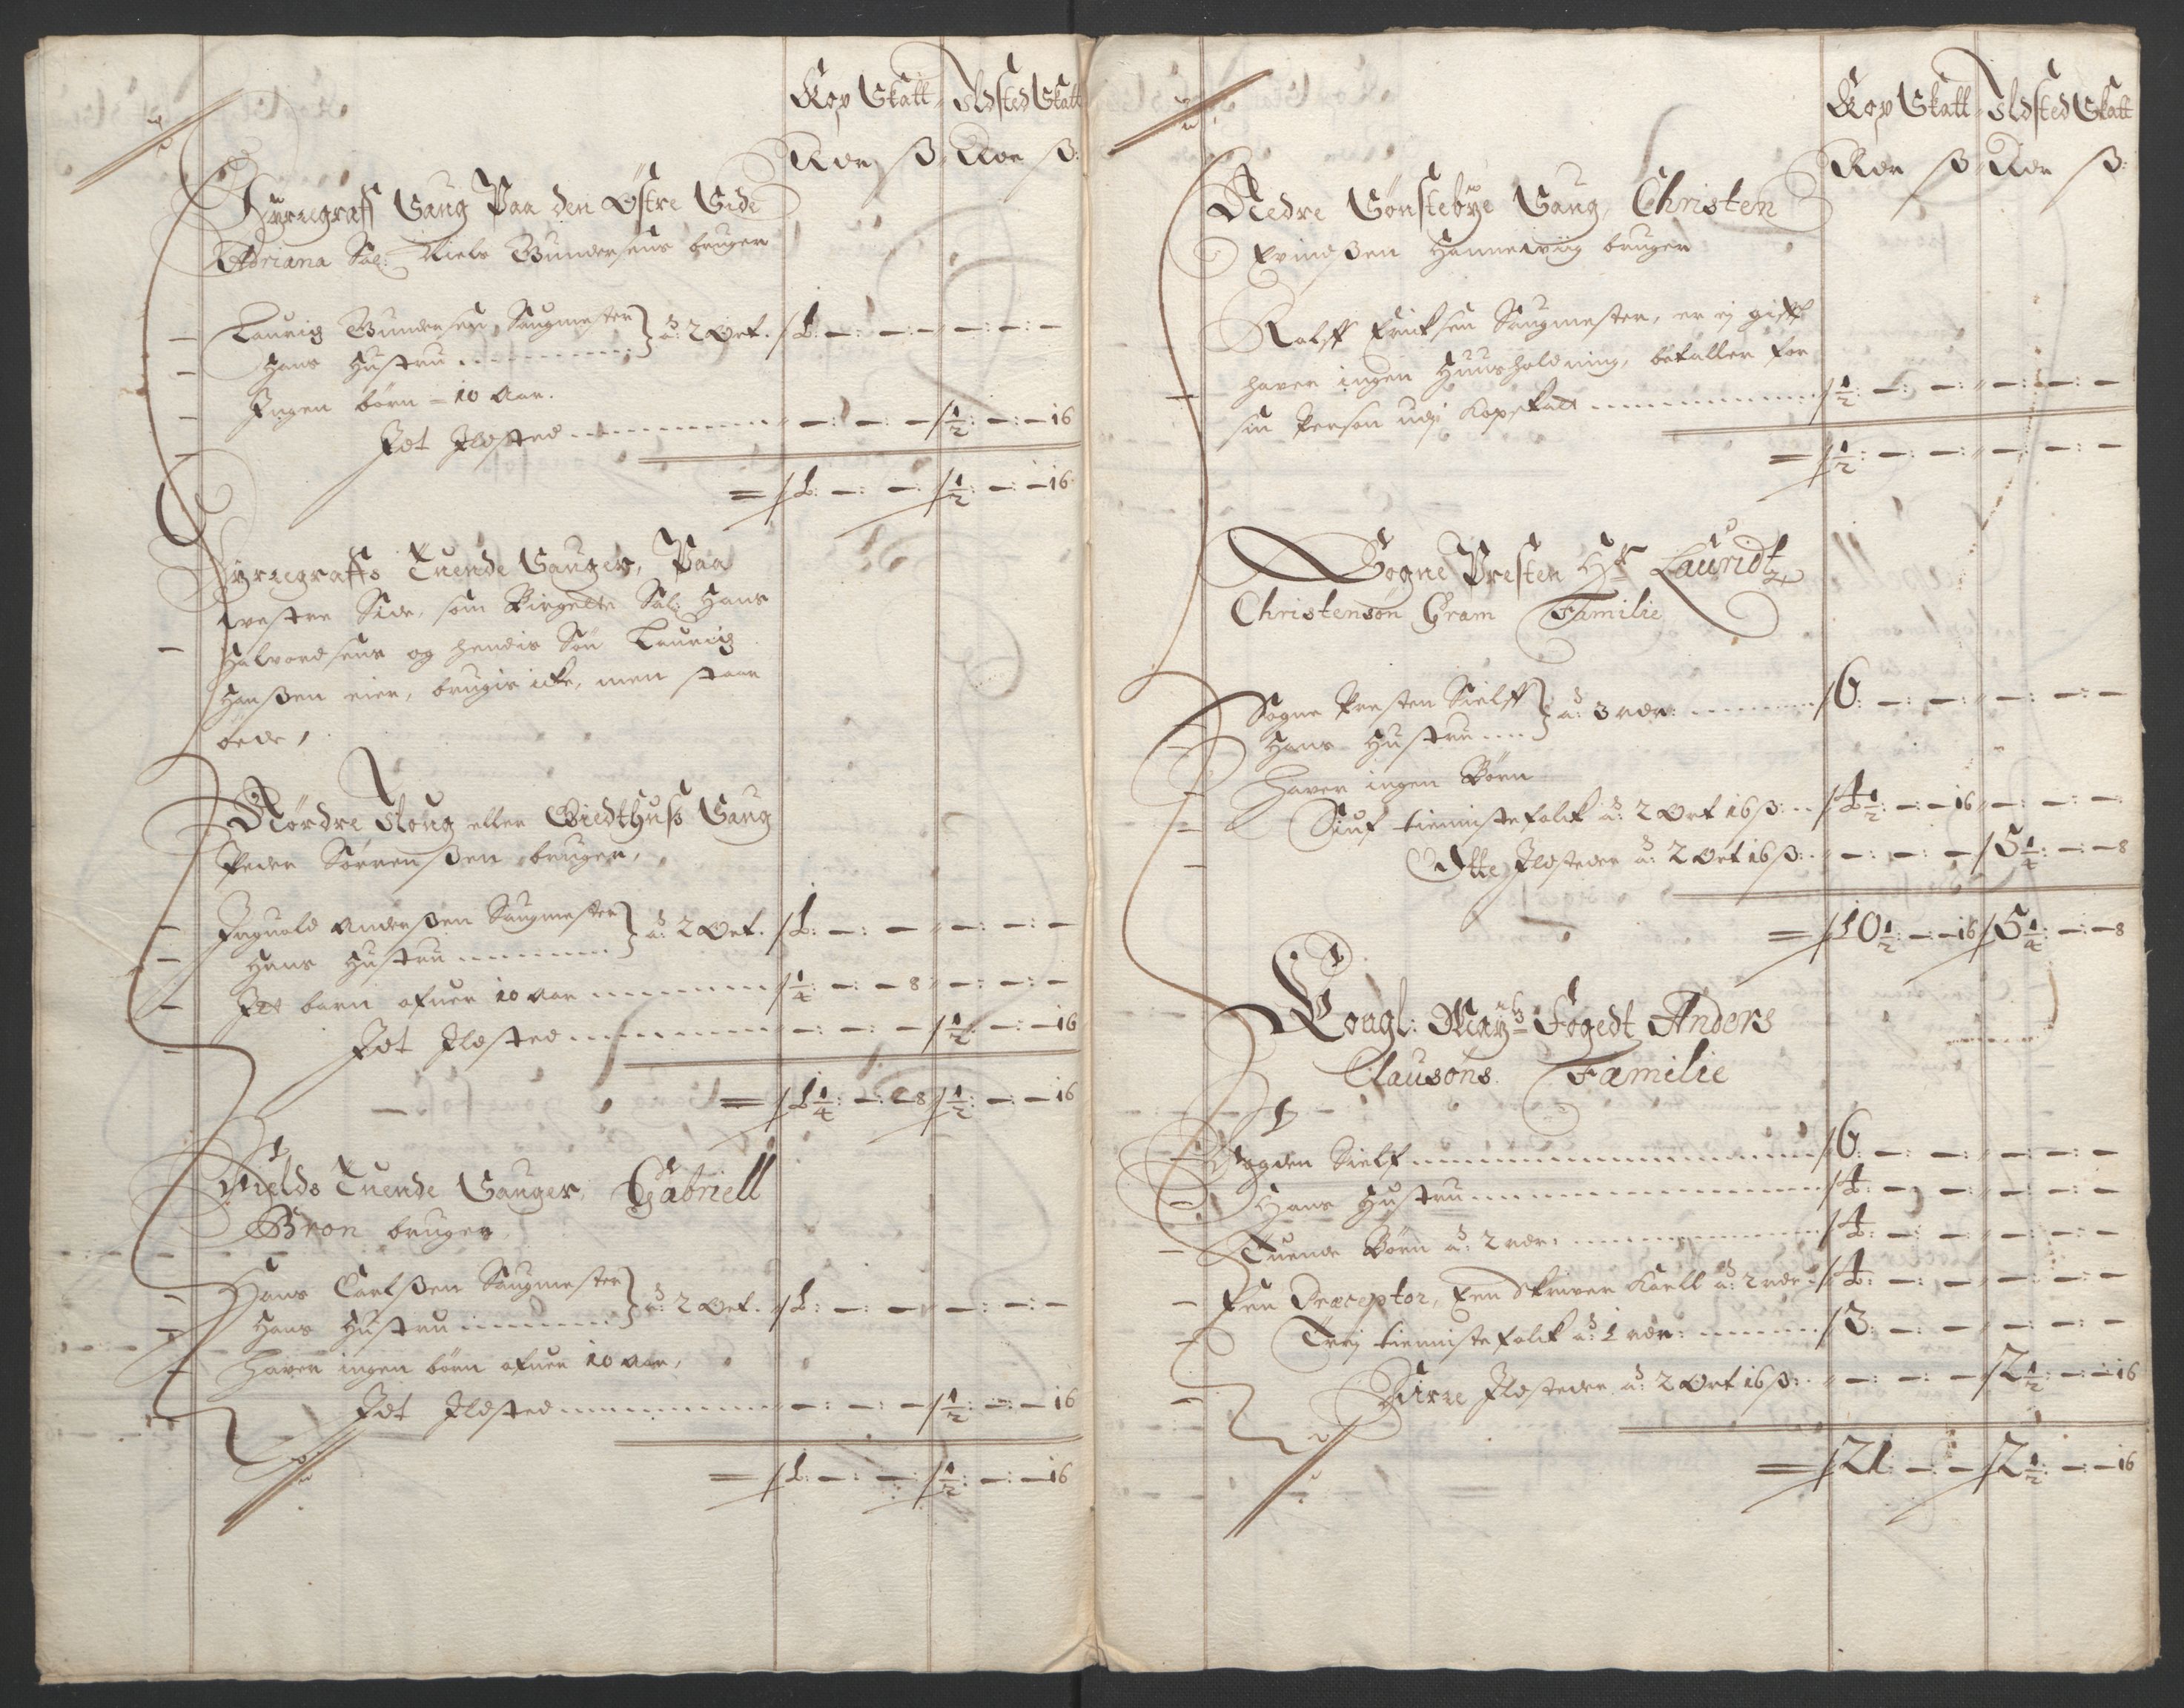 Kop Skatt Ildsted Skatt
Rdr ß Rdr ß:
Kyrregraff Saug Paa den Östre Side
Adriana Sal: Niels Gundersens bruger
Lauriz Gundersen Saugmester } â: 2 Ort. 1: — : — : — : —
Hans Hustru
Ingen börn — 10 Aar.
Jdt Jldsted — : — : — ½: — : — 16
= 1: — : — : ½: — : — 16
Kyrregraffs Tuende Sauger, Paa
westre Side, som Birgette Sal: Hans
Halvordsens og hendis Sön Lauriz
Hanßen eier, brugis icke, men staar
öede,
Nördre Skoug eller Giedthuß Saug
Peder Sörrenßen bruger,
Ingvold Anderßen Saugmester } â: 2 Ort. 1: — : — : — : —
Hans Hustru
Jtt barn ofuer 10 Aar ¼: — : — 8 — : — : —
Jdt Jldsted — : — : — ½: — : — 16
= 1¼: — : — 8 ½: — : — 16
Fields Tuende Sauger, Gabriell
Bron bruger
Hans Carlßen Saugmester } â: 2 Ort. 1: — : — : — : —
Hans Hustru
Hafver ingen börn ofuer 10 Aar,
Jdt Jldsted — : — : — ½: — : — 16
= 1: — : — : ½: — : — 16
Kop Skatt Ildsted Skatt
Rdr ß Rdr ß:
Nedre Sönstebye Saug, Christen
Evindßen Hanneviig bruger
Rolff Erichsen Saugmester, er ej gifft
haver ingen Huusholdning, betaller for
sin Person udj Kopskatt ½: — : — : — : —
= ½: — : — : — : —
Sogne Presten Hr Lauridtz
Christensön Gram Familie
Sogne Presten Sielff } â: 3 rdr: 6: — : — : — : —
Hans Hustru
Haver ingen Börn
Siuf tienniste folck â: 2 Ort 16 ß: 4½: — : — 16 — : — : —
Otte Jldsteder â: 2 Ort 16 ß: — : — : — 5¼: — : — 8
= 10½: — : — 16 5¼: — : — 8
Kongl: Mayts Fogedt Anders
Clausöns Familie
Fogden Sielf 6: — : — : — : —
Hans Hustru 4: — : — : — : —
Tuende Börn â: 2 rdr: 4: — : — : — : —
Een Præceptor, Een Skriver Karll â: 2 rdr 4: — : — : — : —
Trej tienniste folck â: 1 rdr: 3: — : — : — : —
Fiire Jldsteder â: 2 Ort 16 ß: — : — : — 2½: — : — 16
= 21: — : — 2½: — : — 16